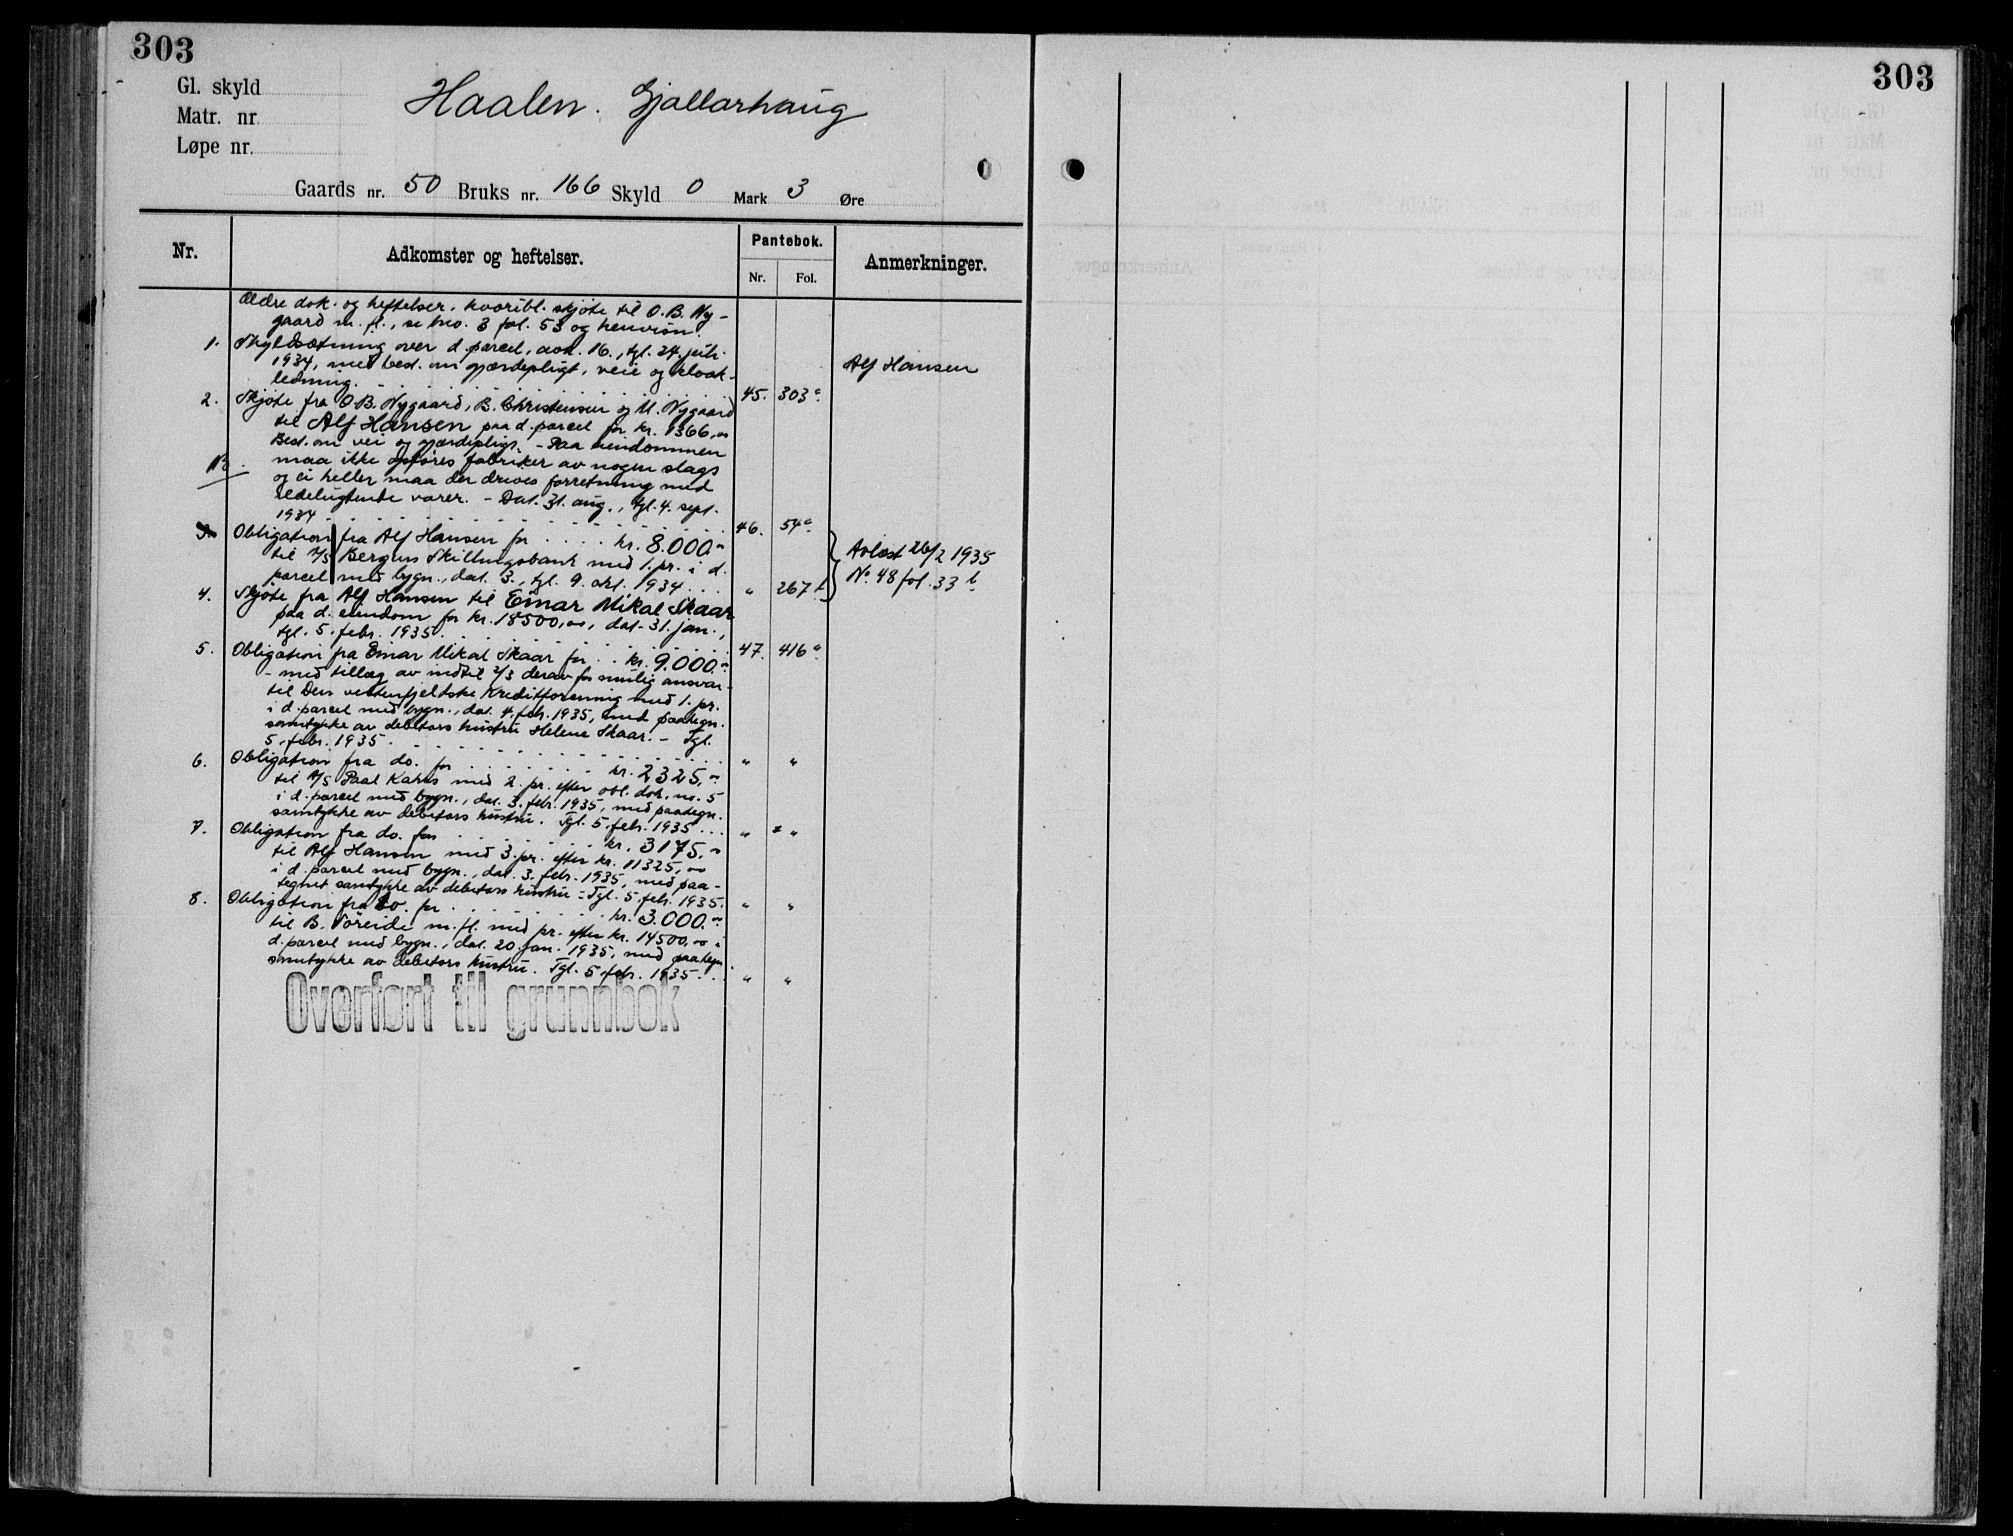 303
303
Gl. skyld
Matr. nr.
Løpe nr.
Haalen. Gjallarhaug
Gaards nr. 50 Bruks nr. 166 Skyld 0 Mark 3 Øre
Nr. Adkomster og heftelser. Pantebok. Anmerkninger.
Nr. Fol.
Ældre dok. og heftelser, hvoribl. skjøte til O. B. Ny-
gaard m. fl., se bno. 3 fol. 53 og henvisn.
1. Skyldsætning over d. parcel, avh. 16., tgl. 24. juli
1934, med best. om gjærdepligt, veie og kloak-
ledning. 45. 303a.
Alf Hansen
2. Skjøte fra O. B. Nygaard, B. Christensen og U. Nygaard
til Alf Hansen paa d. parcel for kr. 1366,00
Best. om vei og gjærdepligt. - Paa eiendommen
NB. maa ikke opføres fabriker av nogen slags
og ei heller maa der drives forretning med
ildelugtende varer. - Dat. 31. aug., tgl. 4. sept.
1934 46. 54a.
3. Obligation fra Alf Hansen for kr. 8.000.00
til A/S Bergens Skillingsbank med 1. pr. i d.
parcel med bygn., dat. 3., tgl. 9. okt. 1934 " 267b.
Avlæst 26/2 1935
No. 48 fol. 33 b
4. Skjøte fra Alf Hansen til Einar Mikal Skaar
paa d. eiendom for kr. 18500,00, dat. 31. jan.,
tgl. 5. febr. 1935. 47. 416a.
5. Obligation fra Einar Mikal Skaar for kr. 9.000.00
- med tillæg av indtil 2/3 derav for mulig ansvar -
til Den vestenfjeldske Kreditforening med 1. pr.
i d. parcel med bygn., dat. 4. febr. 1935, med paategn.
samtykke av debitors hustru Helene Skaar. - Tgl.
5. febr. 1935. " "
6. Obligation fra do. for kr. 2325,00
til A/S Paal Kahrs med 2. pr. efter obl. dok. no. 5
i d. parcel med bygn., dat. 3. febr. 1935, med paategn.
samtykke av debitors hustru. Tgl. 5. febr. 1935 " "
7. Obligation fra do. for kr. 3175,00
til Alf Hansen med 3. pr. efter kr. 11325,00
i d. parcel med bygn., dat. 3. febr. 1935, med paa-
tegnet samtykke av debitors hustru - Tgl. 5. febr. 1935. " "
8. Obligation fra do. for kr. 3.000.00
til B. Tøreide m. fl. med pr. efter kr. 14500,00 i
d. parcel med bygn., dat. 20. jan. 1935, med paategn.
samtykke av debitors hustru. Tgl. 5. febr. 1935. " "
Overført til grunnbok